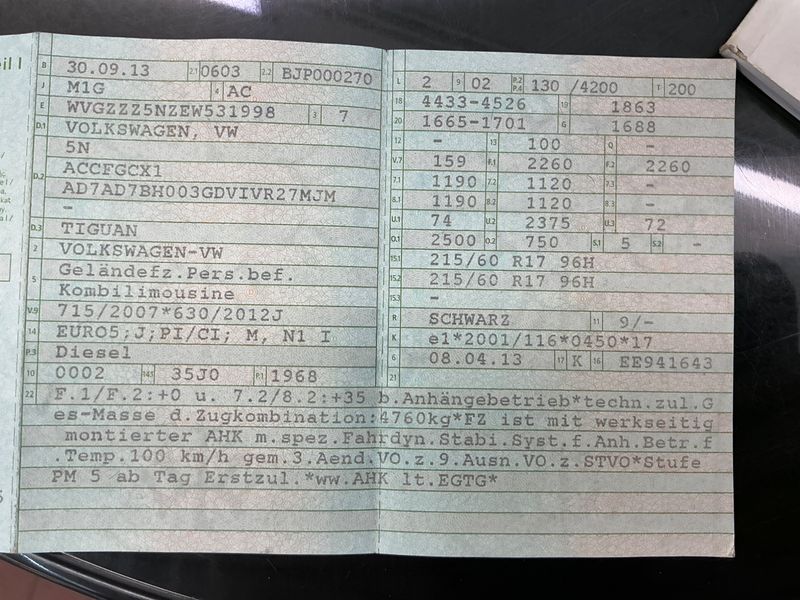 eil I
B 30.09.13 2.1 0603 2.2 BJP000270
J M1G 4 AC
E WVGZZZ5NZEW531998 3 7
D.1 VOLKSWAGEN, VW
5N
D.2 ACCFGCX1
AD7AD7BH003GDVIVR27MJM
–
D.3 TIGUAN
2 VOLKSWAGEN-VW
5 Geländefz.Pers.bef.
Kombilimousine
V.9 715/2007*630/2012J
14 EURO5;J;PI/CI; M, N1 I
P.3 Diesel
10 0002 14.1 35J0 P.1 1968
L 2 9 02 P.2 P.4 130 /4200 T 200
18 4433-4526 19 1863
20 1665-1701 G 1688
12 – 13 100 Q –
V.7 159 F.1 2260 F.2 2260
7.1 1190 7.2 1120 7.3 –
8.1 1190 8.2 1120 8.3 –
U.1 74 U.2 2375 U.3 72
O.1 2500 O.2 750 S.1 5 S.2 –
15.1 215/60 R17 96H
15.2 215/60 R17 96H
15.3 –
R SCHWARZ 11 9/-
K e1*2001/116*0450*17
6 08.04.13 17 K 16 EE941643
21
22 F.1/F.2:+0 u. 7.2/8.2:+35 b.Anhängebetrieb*techn.zul.G
es-Masse d.Zugkombination:4760kg*FZ ist mit werkseitig
montierter AHK m.spez.Fahrdyn.Stabi.Syst.f.Anh.Betr.f
.Temp.100 km/h gem.3.Aend.VO.z.9.Ausn.VO.z.STVO*Stufe
PM 5 ab Tag Erstzul.*ww.AHK lt.EGTG*